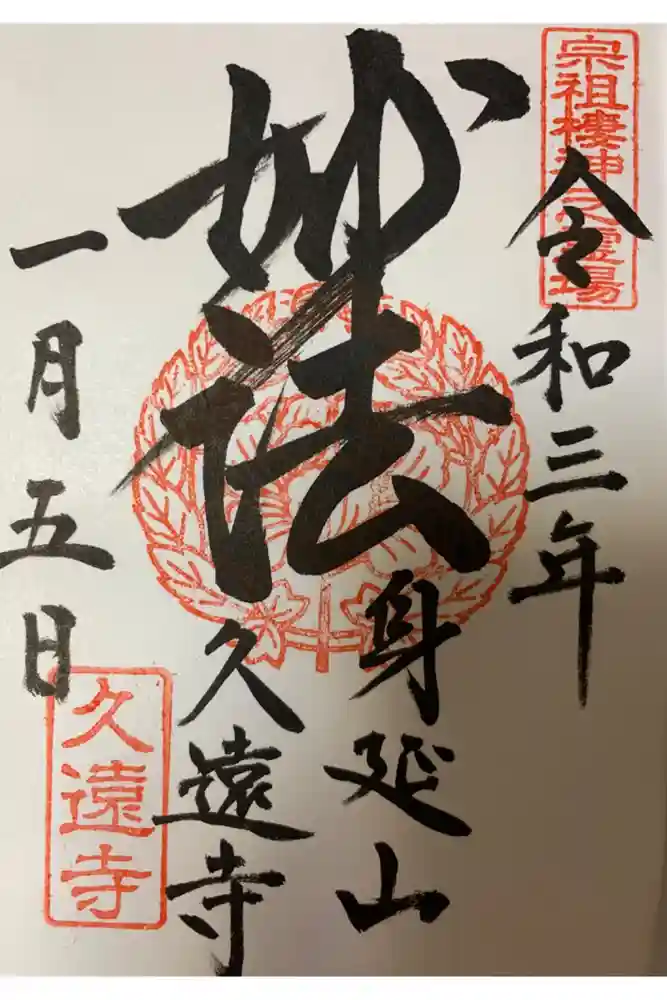 宗祖棲神之霊場
令和三年
妙法
身延山
久遠寺
一月五日
久遠寺